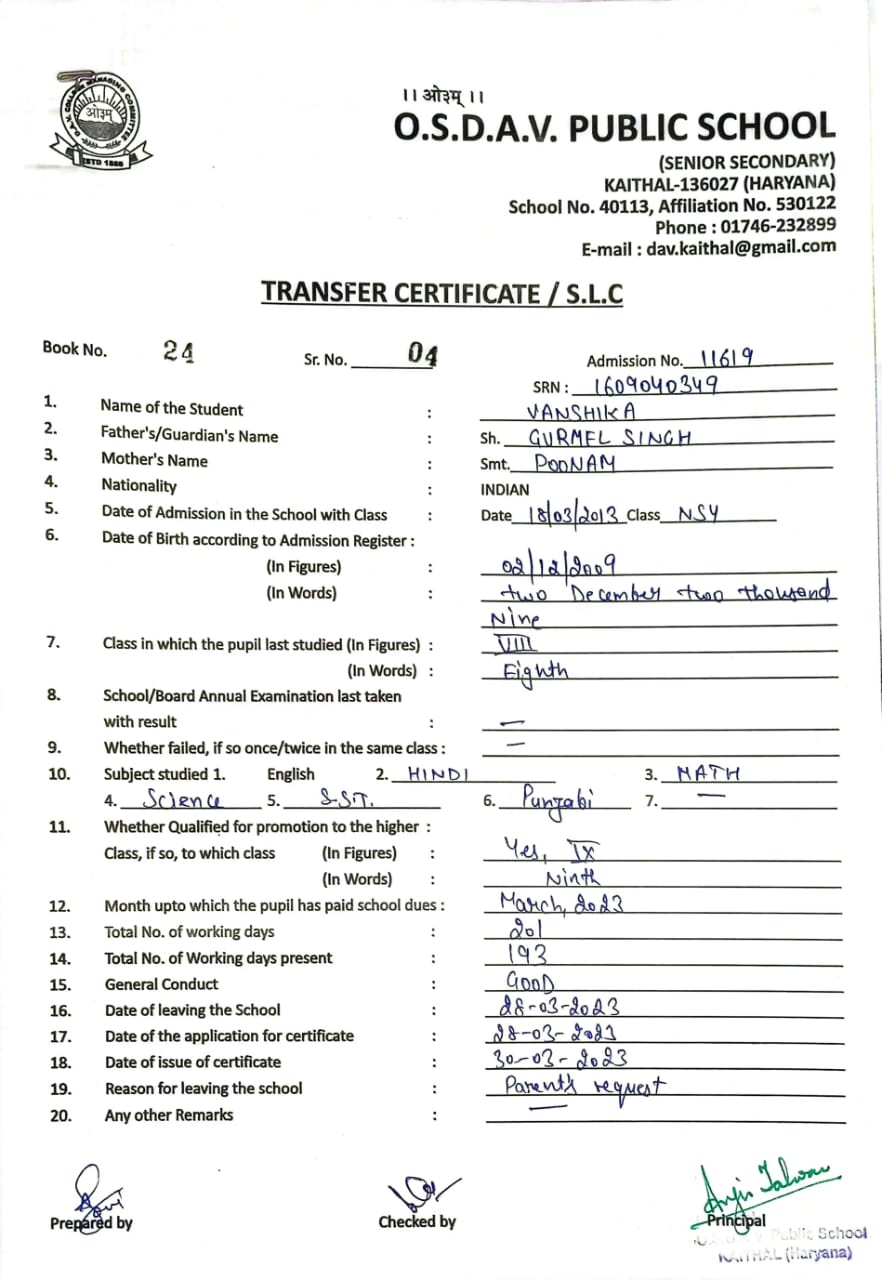 D.A.V. COLLEGE MANAGING COMMITTEE
ओ३म्
ESTD 1886
।। ओ३म् ।।
O.S.D.A.V. PUBLIC SCHOOL
(SENIOR SECONDARY)
KAITHAL-136027 (HARYANA)
School No. 40113, Affiliation No. 530122
Phone : 01746-232899
E-mail : dav.kaithal@gmail.com
TRANSFER CERTIFICATE / S.L.C
Book No. 24 Sr. No. 04 Admission No. 11619
SRN : 1609040349
1. Name of the Student : VANSHIKA
2. Father's/Guardian's Name : Sh. GURMEL SINGH
3. Mother's Name : Smt. POONAM
4. Nationality : INDIAN
5. Date of Admission in the School with Class : Date 18/03/2013 Class NSY
6. Date of Birth according to Admission Register :
(In Figures) : 02/12/2009
(In Words) : two December two thousand
Nine
7. Class in which the pupil last studied (In Figures) : VIII
(In Words) : Eighth
8. School/Board Annual Examination last taken
with result : —
9. Whether failed, if so once/twice in the same class : —
10. Subject studied 1. English 2. HINDI 3. MATH
4. Science 5. S.ST. 6. Punjabi 7. —
11. Whether Qualified for promotion to the higher :
Class, if so, to which class (In Figures) : Yes, IX
(In Words) : Ninth
12. Month upto which the pupil has paid school dues : March, 2023
13. Total No. of working days : 201
14. Total No. of Working days present : 193
15. General Conduct : GOOD
16. Date of leaving the School : 28-03-2023
17. Date of the application for certificate : 28-03-2023
18. Date of issue of certificate : 30-03-2023
19. Reason for leaving the school : Parent's request
20. Any other Remarks : —
Prepared by Checked by Principal
Public School
KAITHAL (Haryana)